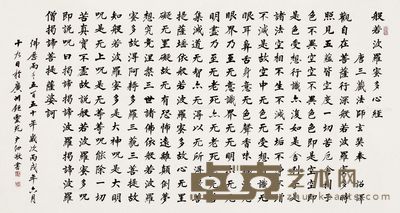 般若波羅密多心經
唐三藏法師玄奘奉 詔譯
觀自在菩薩行深般若波羅密多時
照見五蘊皆空度一切苦厄舍利子
色不異空空不異色色即是空空即
是色受想行識亦復如是舍利子是
諸法空相不生不滅不垢不淨不增
不減是故空中无色无受想行識无
眼耳鼻舌身意无色聲香味觸法无
眼界乃至无意識界无无明亦无无
明盡乃至无老死亦无老死盡无苦
集滅道无智亦无得以无所得故菩
提薩埵依般若波羅密多故心无罣
礙无罣礙故无有恐怖遠離顛倒夢
想究竟涅槃三世諸佛依般若波羅
密多故得阿耨多羅三藐三菩提故
知般若波羅密多是大神呪是大明
呪是无上呪是无等等呪能除一切
苦真實不虛故說般若波羅密多呪
即說呪曰揭諦揭諦波羅揭諦波羅
僧揭諦菩提薩婆訶
佛歷 五百五十年歲次丙戌年六月
十九日於廣州 敬書